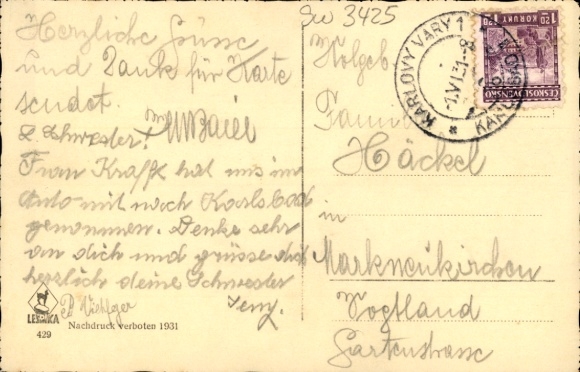 3425
Herzliche Grüsse
und Dank für Karte
sendet.
L. Schwester!
Frau Krafft hat uns im
Auto mit nach Karlsbad
genommen. Denke sehr
an dich und grüsse dich
herzlich deine Schwester
Jenny.
LEMKA
429
Nachdruck verboten 1931
KARLOVY VARY 1
ČESKOSLOVENSKO
1.20 KORUNY 1.20
Familie
Häckel
in
Markneukirchen
Vogtland
Gartenstrasse